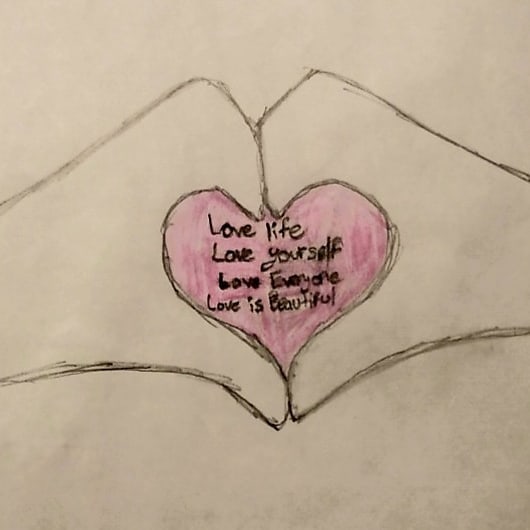 Love life
Love yourself
Love Everyone
Love is Beautiful